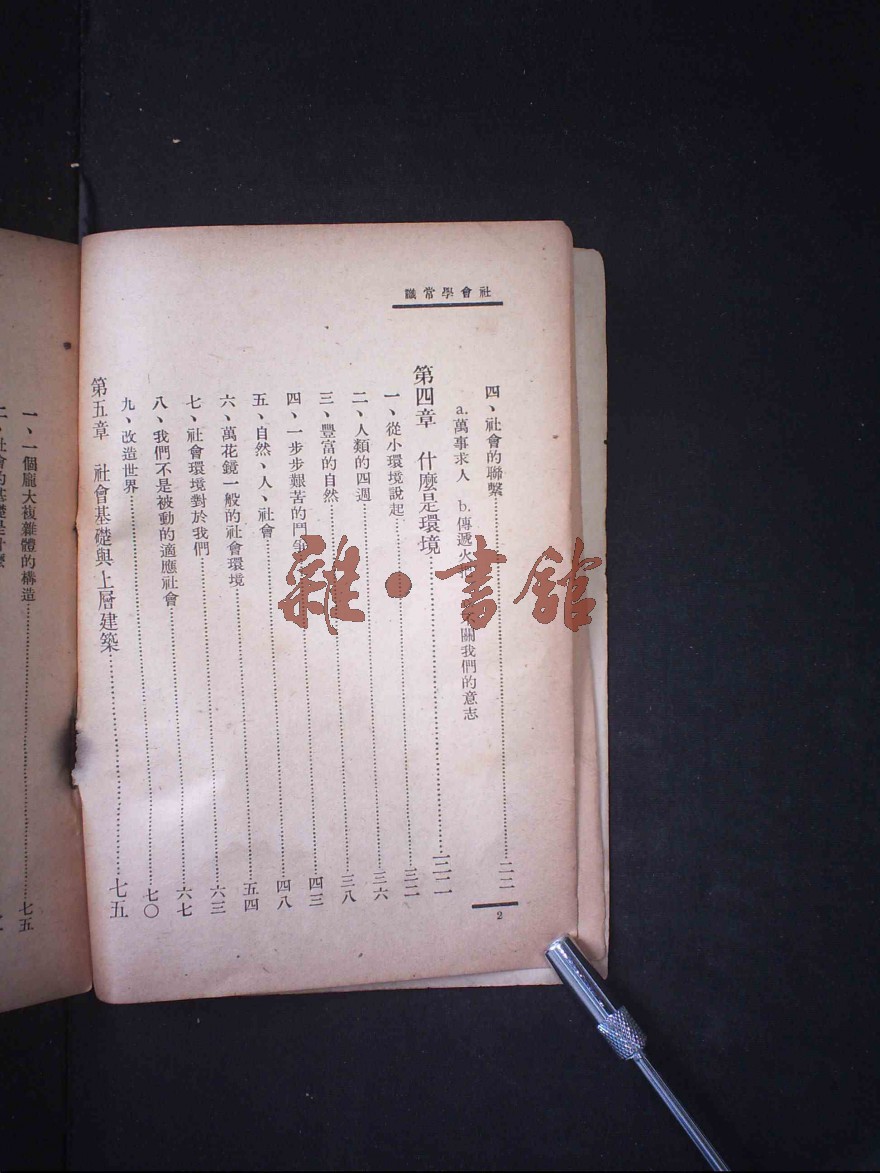 社會學常識
四、社會的聯繫……
a. 萬事求人　b. 傳遞火　關我們的意志
第四章　什麼是環境……三二
一、從小環境說起……三二
二、人類的四週……三六
三、豐富的自然……三八
四、一步步艱苦的鬥爭……四三
五、自然、人、社會……四八
六、萬花鏡一般的社會環境……五四
七、社會環境對於我們……六三
八、我們不是被動的適應社會……六七
九、改造世界……七〇
第五章　社會基礎與上層建築……七五
2
一、一個龐大複雜體的構造……七五
二、社會的基礎是什麼
雜·書館